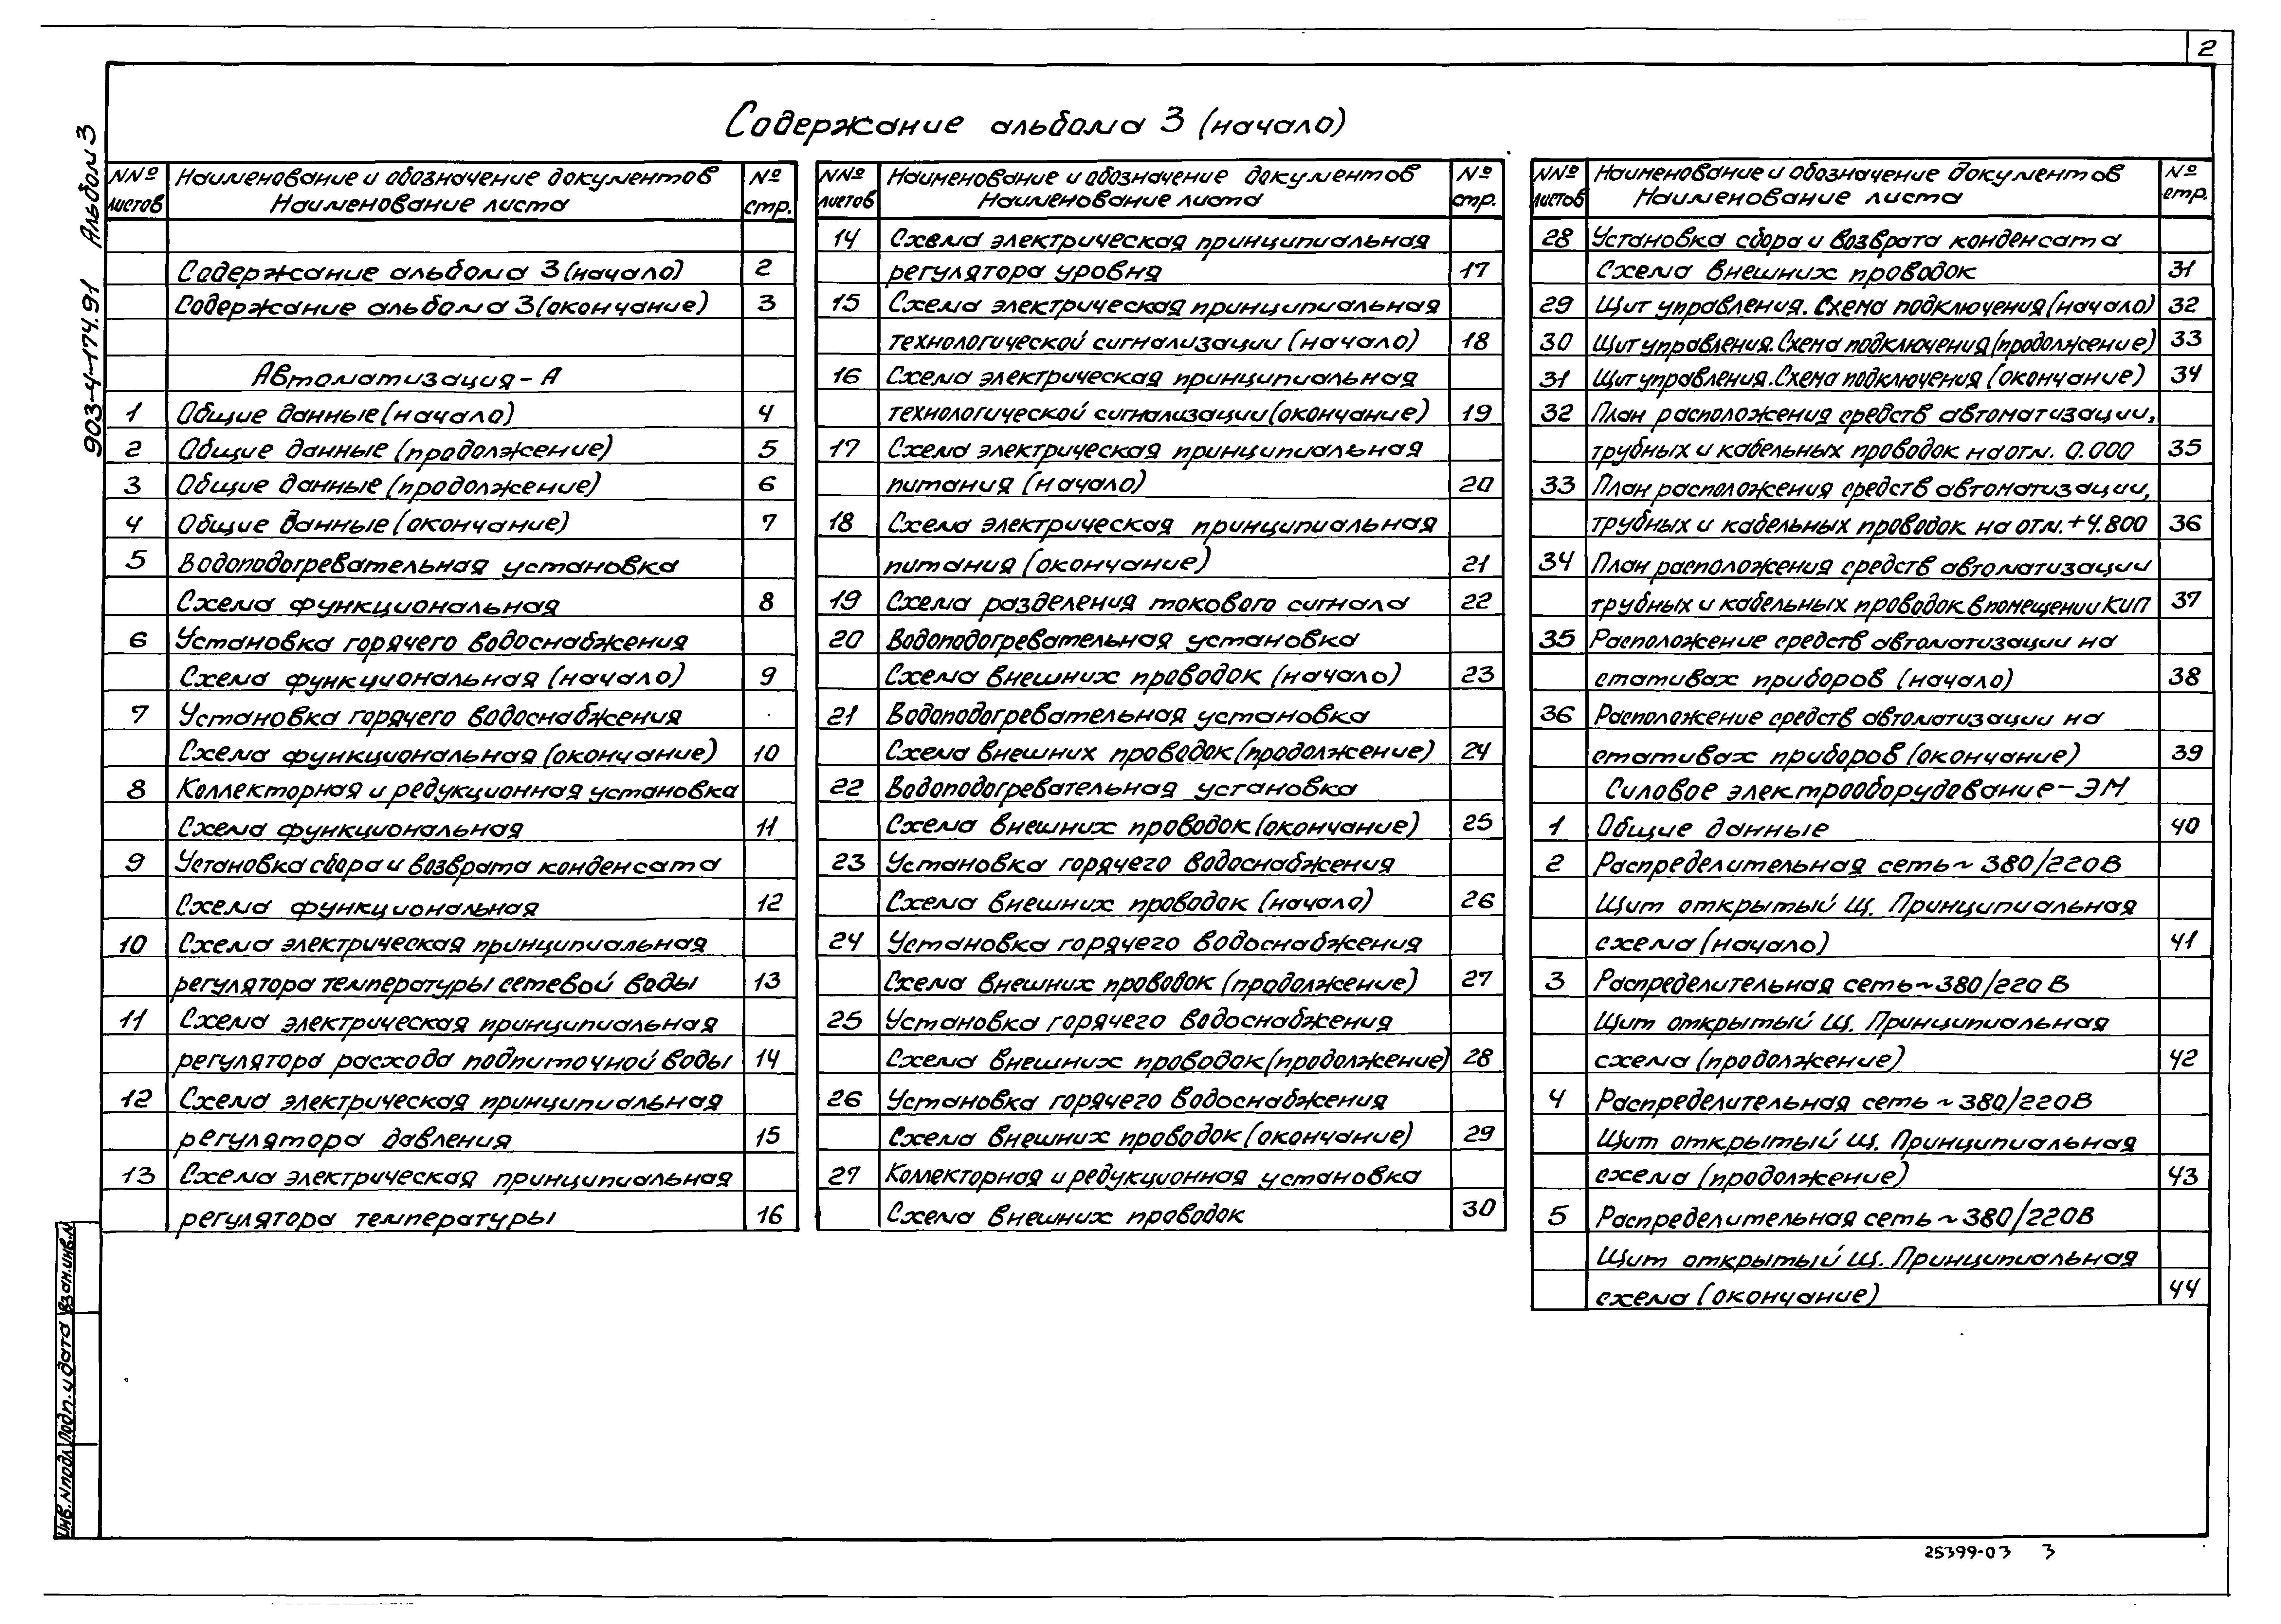 2
Содержание альбома 3 (начало)
903-4-174.91 Альбом 3
NNº листов
Наименование и обозначение документов
Наименование листа
Nº стр.
Содержание альбома 3 (начало) 2
Содержание альбома 3 (окончание) 3
Автоматизация - А
1 Общие данные (начало) 4
2 Общие данные (продолжение) 5
3 Общие данные (продолжение) 6
4 Общие данные (окончание) 7
5 Водоподогревательная установка
Схема функциональная 8
6 Установка горячего водоснабжения
Схема функциональная (начало) 9
7 Установка горячего водоснабжения
Схема функциональная (окончание) 10
8 Коллекторная и редукционная установка
Схема функциональная 11
9 Установка сбора и возврата конденсата
Схема функциональная 12
10 Схема электрическая принципиальная
регулятора температуры сетевой воды 13
11 Схема электрическая принципиальная
регулятора расхода подпиточной воды 14
12 Схема электрическая принципиальная
регулятора давления 15
13 Схема электрическая принципиальная
регулятора температуры 16
NNº листов
Наименование и обозначение документов
Наименование листа
Nº стр.
14 Схема электрическая принципиальная
регулятора уровня 17
15 Схема электрическая принципиальная
технологической сигнализации (начало) 18
16 Схема электрическая принципиальная
технологической сигнализации (окончание) 19
17 Схема электрическая принципиальная
питания (начало) 20
18 Схема электрическая принципиальная
питания (окончание) 21
19 Схема разделения токового сигнала 22
20 Водоподогревательная установка
Схема внешних проводок (начало) 23
21 Водоподогревательная установка
Схема внешних проводок (продолжение) 24
22 Водоподогревательная установка
Схема внешних проводок (окончание) 25
23 Установка горячего водоснабжения
Схема внешних проводок (начало) 26
24 Установка горячего водоснабжения
Схема внешних проводок (продолжение) 27
25 Установка горячего водоснабжения
Схема внешних проводок (продолжение) 28
26 Установка горячего водоснабжения
Схема внешних проводок (окончание) 29
27 Коллекторная и редукционная установка
Схема внешних проводок 30
NNº листов
Наименование и обозначение документов
Наименование листа
Nº стр.
28 Установка сбора и возврата конденсата
Схема внешних проводок 31
29 Щит управления. Схема подключения (начало) 32
30 Щит управления. Схема подключения (продолжение) 33
31 Щит управления. Схема подключения (окончание) 34
32 План расположения средств автоматизации,
трубных и кабельных проводок на отм. 0.000 35
33 План расположения средств автоматизации,
трубных и кабельных проводок на отм. +4.800 36
34 План расположения средств автоматизации
трубных и кабельных проводок в помещении КИП 37
35 Расположение средств автоматизации на
стативах приборов (начало) 38
36 Расположение средств автоматизации на
стативах приборов (окончание) 39
Силовое электрооборудование - ЭМ
1 Общие данные 40
2 Распределительная сеть ~ 380/220В
Щит открытый Щ. Принципиальная
схема (начало) 41
3 Распределительная сеть ~ 380/220В
Щит открытый Щ. Принципиальная
схема (продолжение) 42
4 Распределительная сеть ~ 380/220В
Щит открытый Щ. Принципиальная
схема (продолжение) 43
5 Распределительная сеть ~ 380/220В
Щит открытый Щ. Принципиальная
схема (окончание) 44
Инв. N подл. Подп. и дата Взам. инв. N
25399-03 3